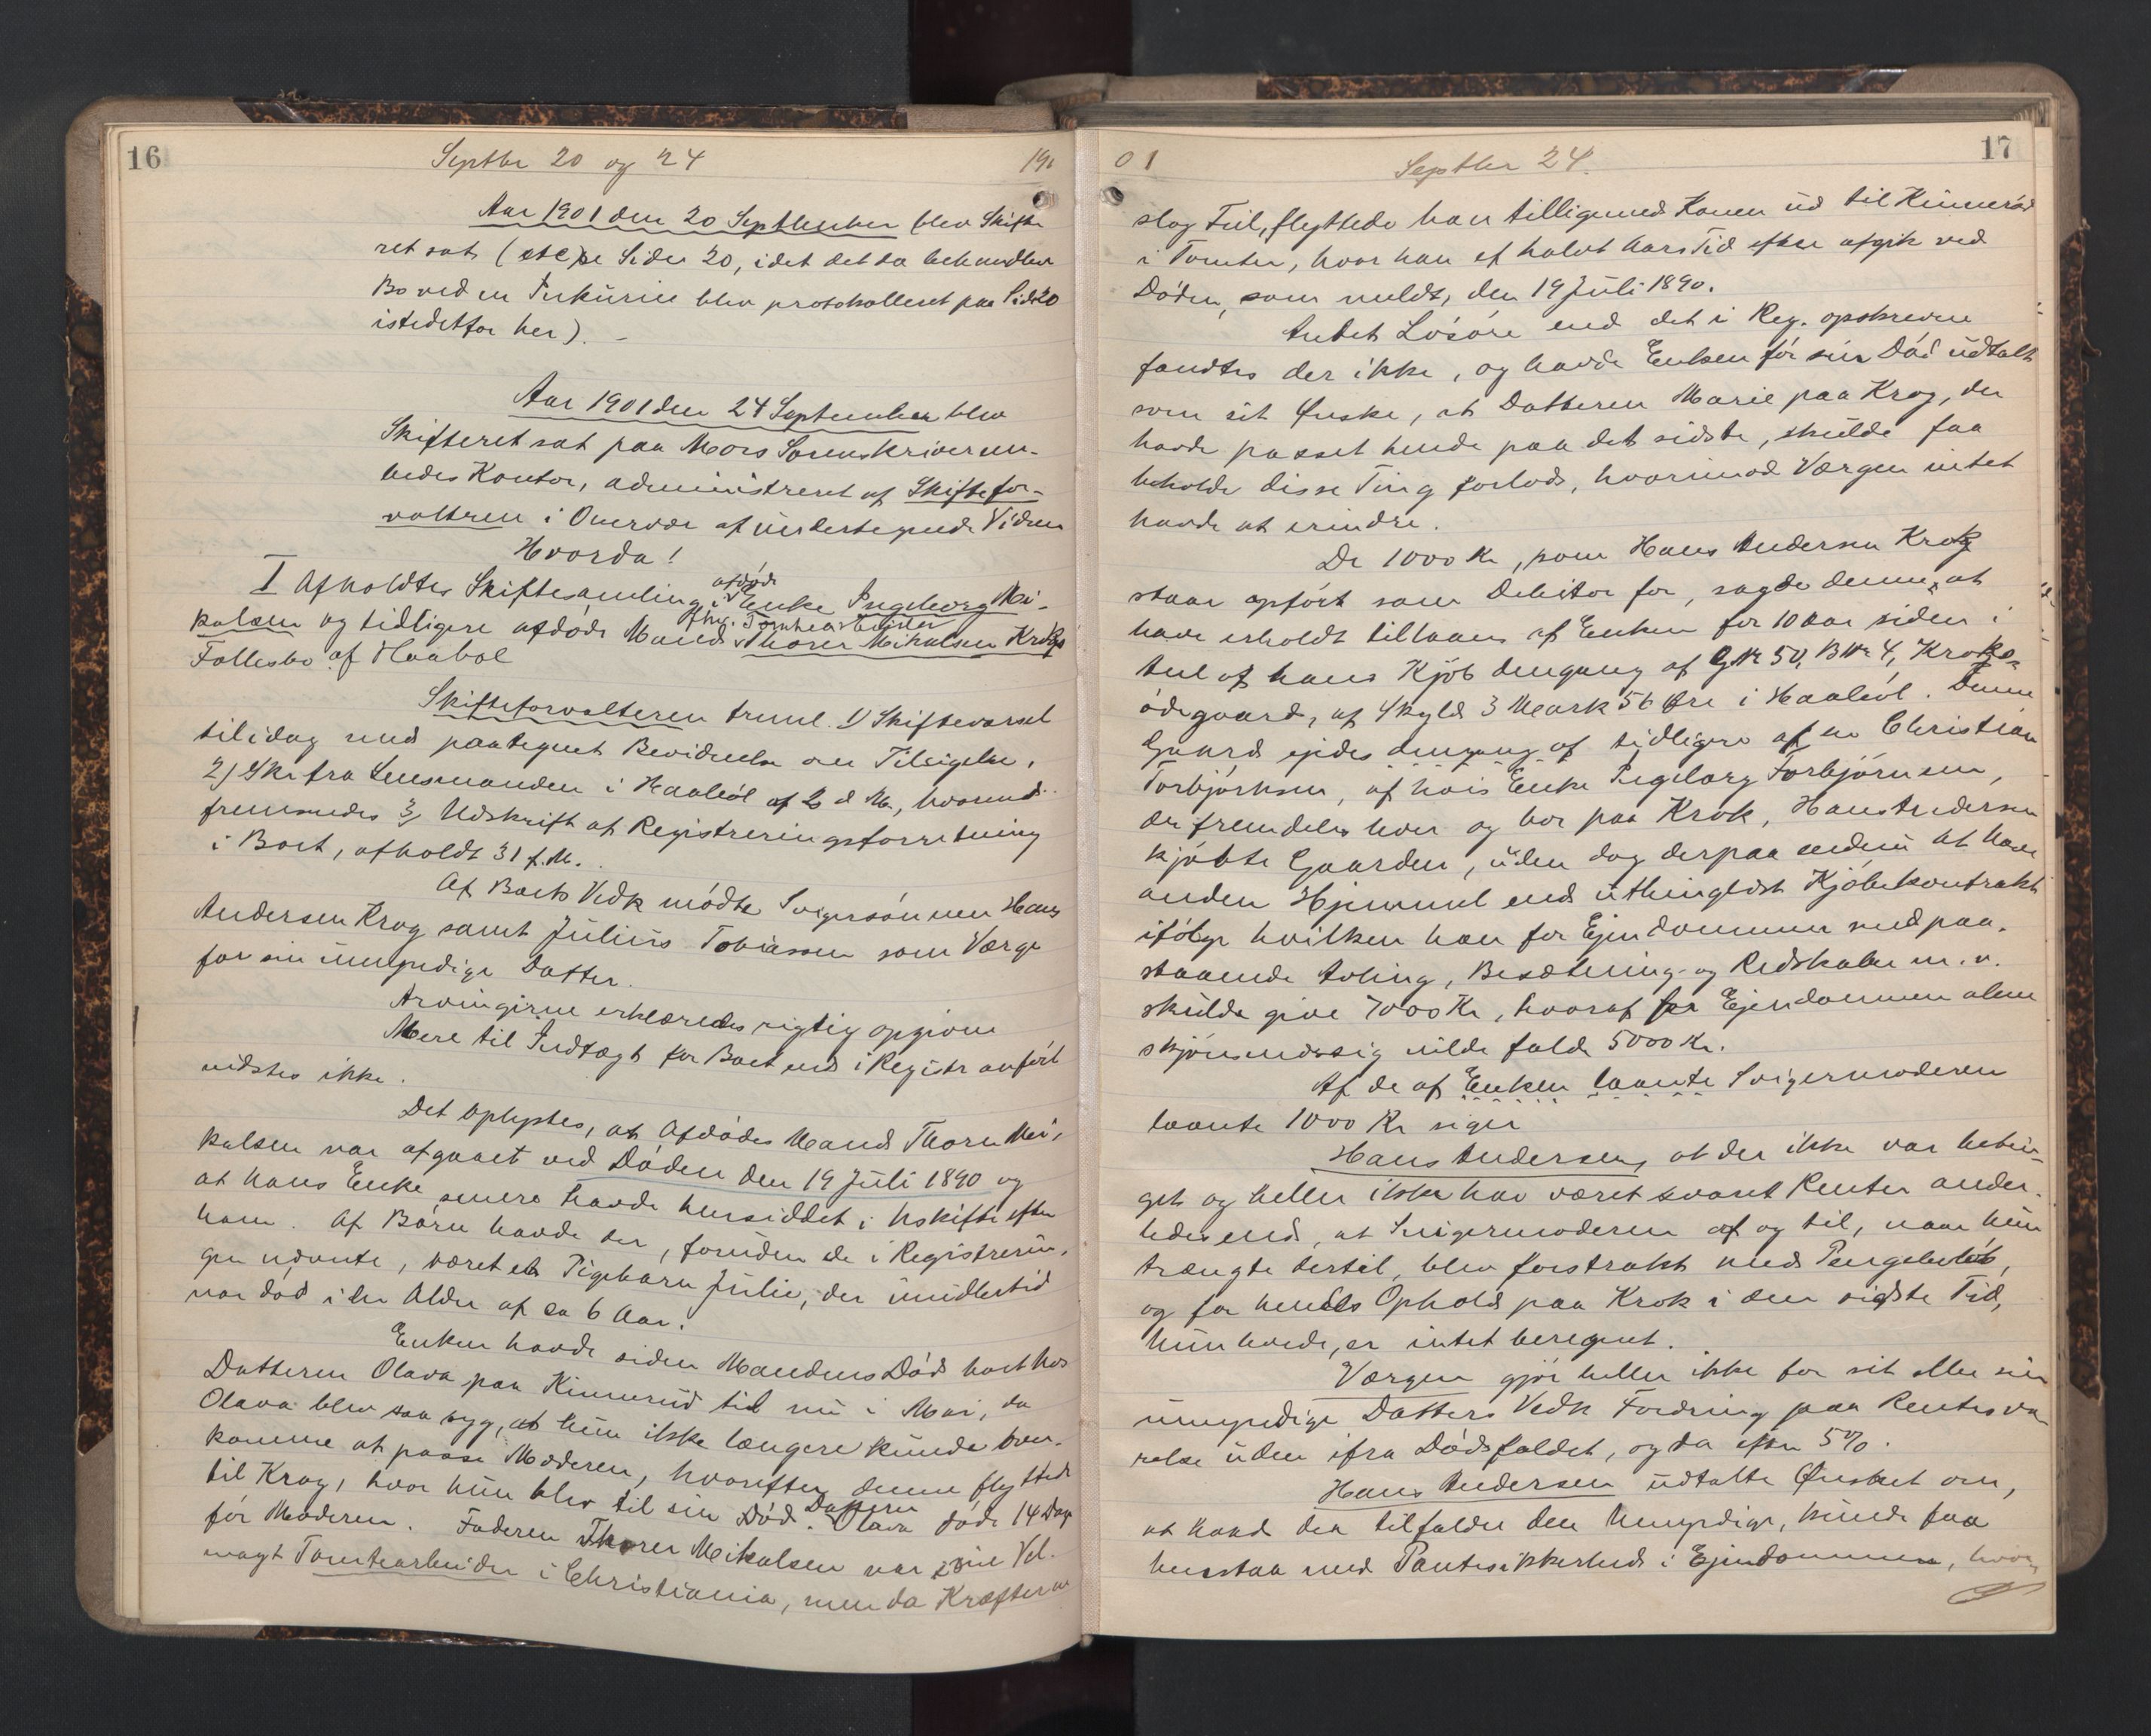 16
Septbr 20 og 24
190
Aar 1901 den 20 September blev Skifte
ret sat (etc) se Siden 20, idet det da behandlede
Bo ved en Inkurie blev protokolleret paa Side 20
istedetfor her). -
Aar 1901 den 24 September blev
Skifteret sat paa Moss Sorenskriverem-
bedes Kontor, administreret af Skiftefor-
valteren i Overvær af undertegnede Vidner
Hvorda!
I Afholdtes Skiftesamling i afdøde Enke Ingeborg Mi-
kalsen og tidligere afdøde Mand, Thorer Mikalsen Krogs
Fællesbo af Haabøl
Skifteforvalteren freml. 1) Skiftevarsel
til idag med paategnet Bevidnelse om Tilsigelse,
2) Skr fra Lensmanden i Haabøl af 2 d M., hvormed
fremsendes 3) Udskrift af Registreringsforretning
i Boet, afholdt 31 f.M.
Af Boets Vedk mødte Svigersønnen Hans
Andersen Krog samt Julius Tobiassen som Værge
for sin umyndige Datter.
Arvingerne erklæredes rigtig opgivne
Mere til Indtægt for Boet end i Registr anført
vidstes ikke.
Det oplystes, at Afdødes Mand Thorer Mi-
kalsen var afgaaet ved Døden den 19 Juli 1890 og
at hans Enke senere havde hensiddet i Uskifte efter
ham. Af Børn havde der, foruden de i Registrerin-
gen nævnte, været et Pigebarn Julie, der imidlertid
var død i en Alder af ca 6 Aar.
Enken havde siden Mandens Død boet hos
Datteren Olava paa Kinnerud til nu i Mai, da
Olava blev saa syg, at hun ikke længere kunde over-
komme at passe Moderen, hvorefter denne flyttede
til Krog, hvor hun blev til sin Død. Datteren Olava døde 14 Dage
før Moderen. Faderen Thorer Mikalsen var i sin Vel-
magt Tomtearbeider i Christiania, men da Kræfterne
01
Septber 24.
17
slog Feil, flyttede han tilligemed Konen ud til Kinnerød
i Tomter, hvor han et halvt Aars Tid efter afgik ved
Døden, som meldt, den 19 Juli 1890.
Andet Løsøre end det i Reg. opskrevne
fandtes der ikke, og havde Enken før sin Død udtalt
som sit Ønske, at Datteren Marie paa Krog, der
havde passet hende paa det sidste, skulde faa
beholde disse Ting forlods, hvorimod Værgen intet
havde at erindre.
De 1000 Kr, som Hans Andersen Krog
staar opført som Debitor for, sagde denne at
have erholdt tillaans af Enken for 10 Aar siden i
Anl af hans Kjøb dengang af GNr 50, BNr 4, Kroks-
ødegaard, af Skyld 3 Mark 56 Øre i Haabøl. Denne
Gaard eiedes dengang af tidligere af en Christian
Torbjørnsen, af hvis Enke Ingeborg Torbjørnsen,
der fremdeles lever og bor paa Krok, Hans Andersen
kjøbte Gaarden, uden dog derpaa endnu at have
anden Hjemmel end uthinglæst Kjøbekontrakt
ifølge hvilken han for Ejendommen med paa-
staaende Avling, Besætning og Redskaber m. v.
skulde give 7000 Kr, hvoraf for Ejendommen alene
skjønsmæssig vilde falde 5000 Kr.
Af de af Enken laante Svigermoderen
laante 1000 Kr siger
Hans Andersen, at der ikke var betin-
get og heller ikke har været svaret Renter ander-
ledes end, at Svigermoderen af og til, naar hun
trængte dertil, blev forstrakt med Pengebeløb,
og for hendes Ophold paa Krok i den sidste Tid,
hun levede, er intet beregnet.
Værgen gjør heller ikke for sit eller sin
umyndige Datters Vedk Fordring paa Rentesva-
relse uden ifra Dødsfaldet, og da efter 5%.
Hans Andersen udtalte Ønsket om,
at hvad der tilfalder den Umyndige, kunde faa
henstaa med Pantesikkerhed i Ejendommen, hvor